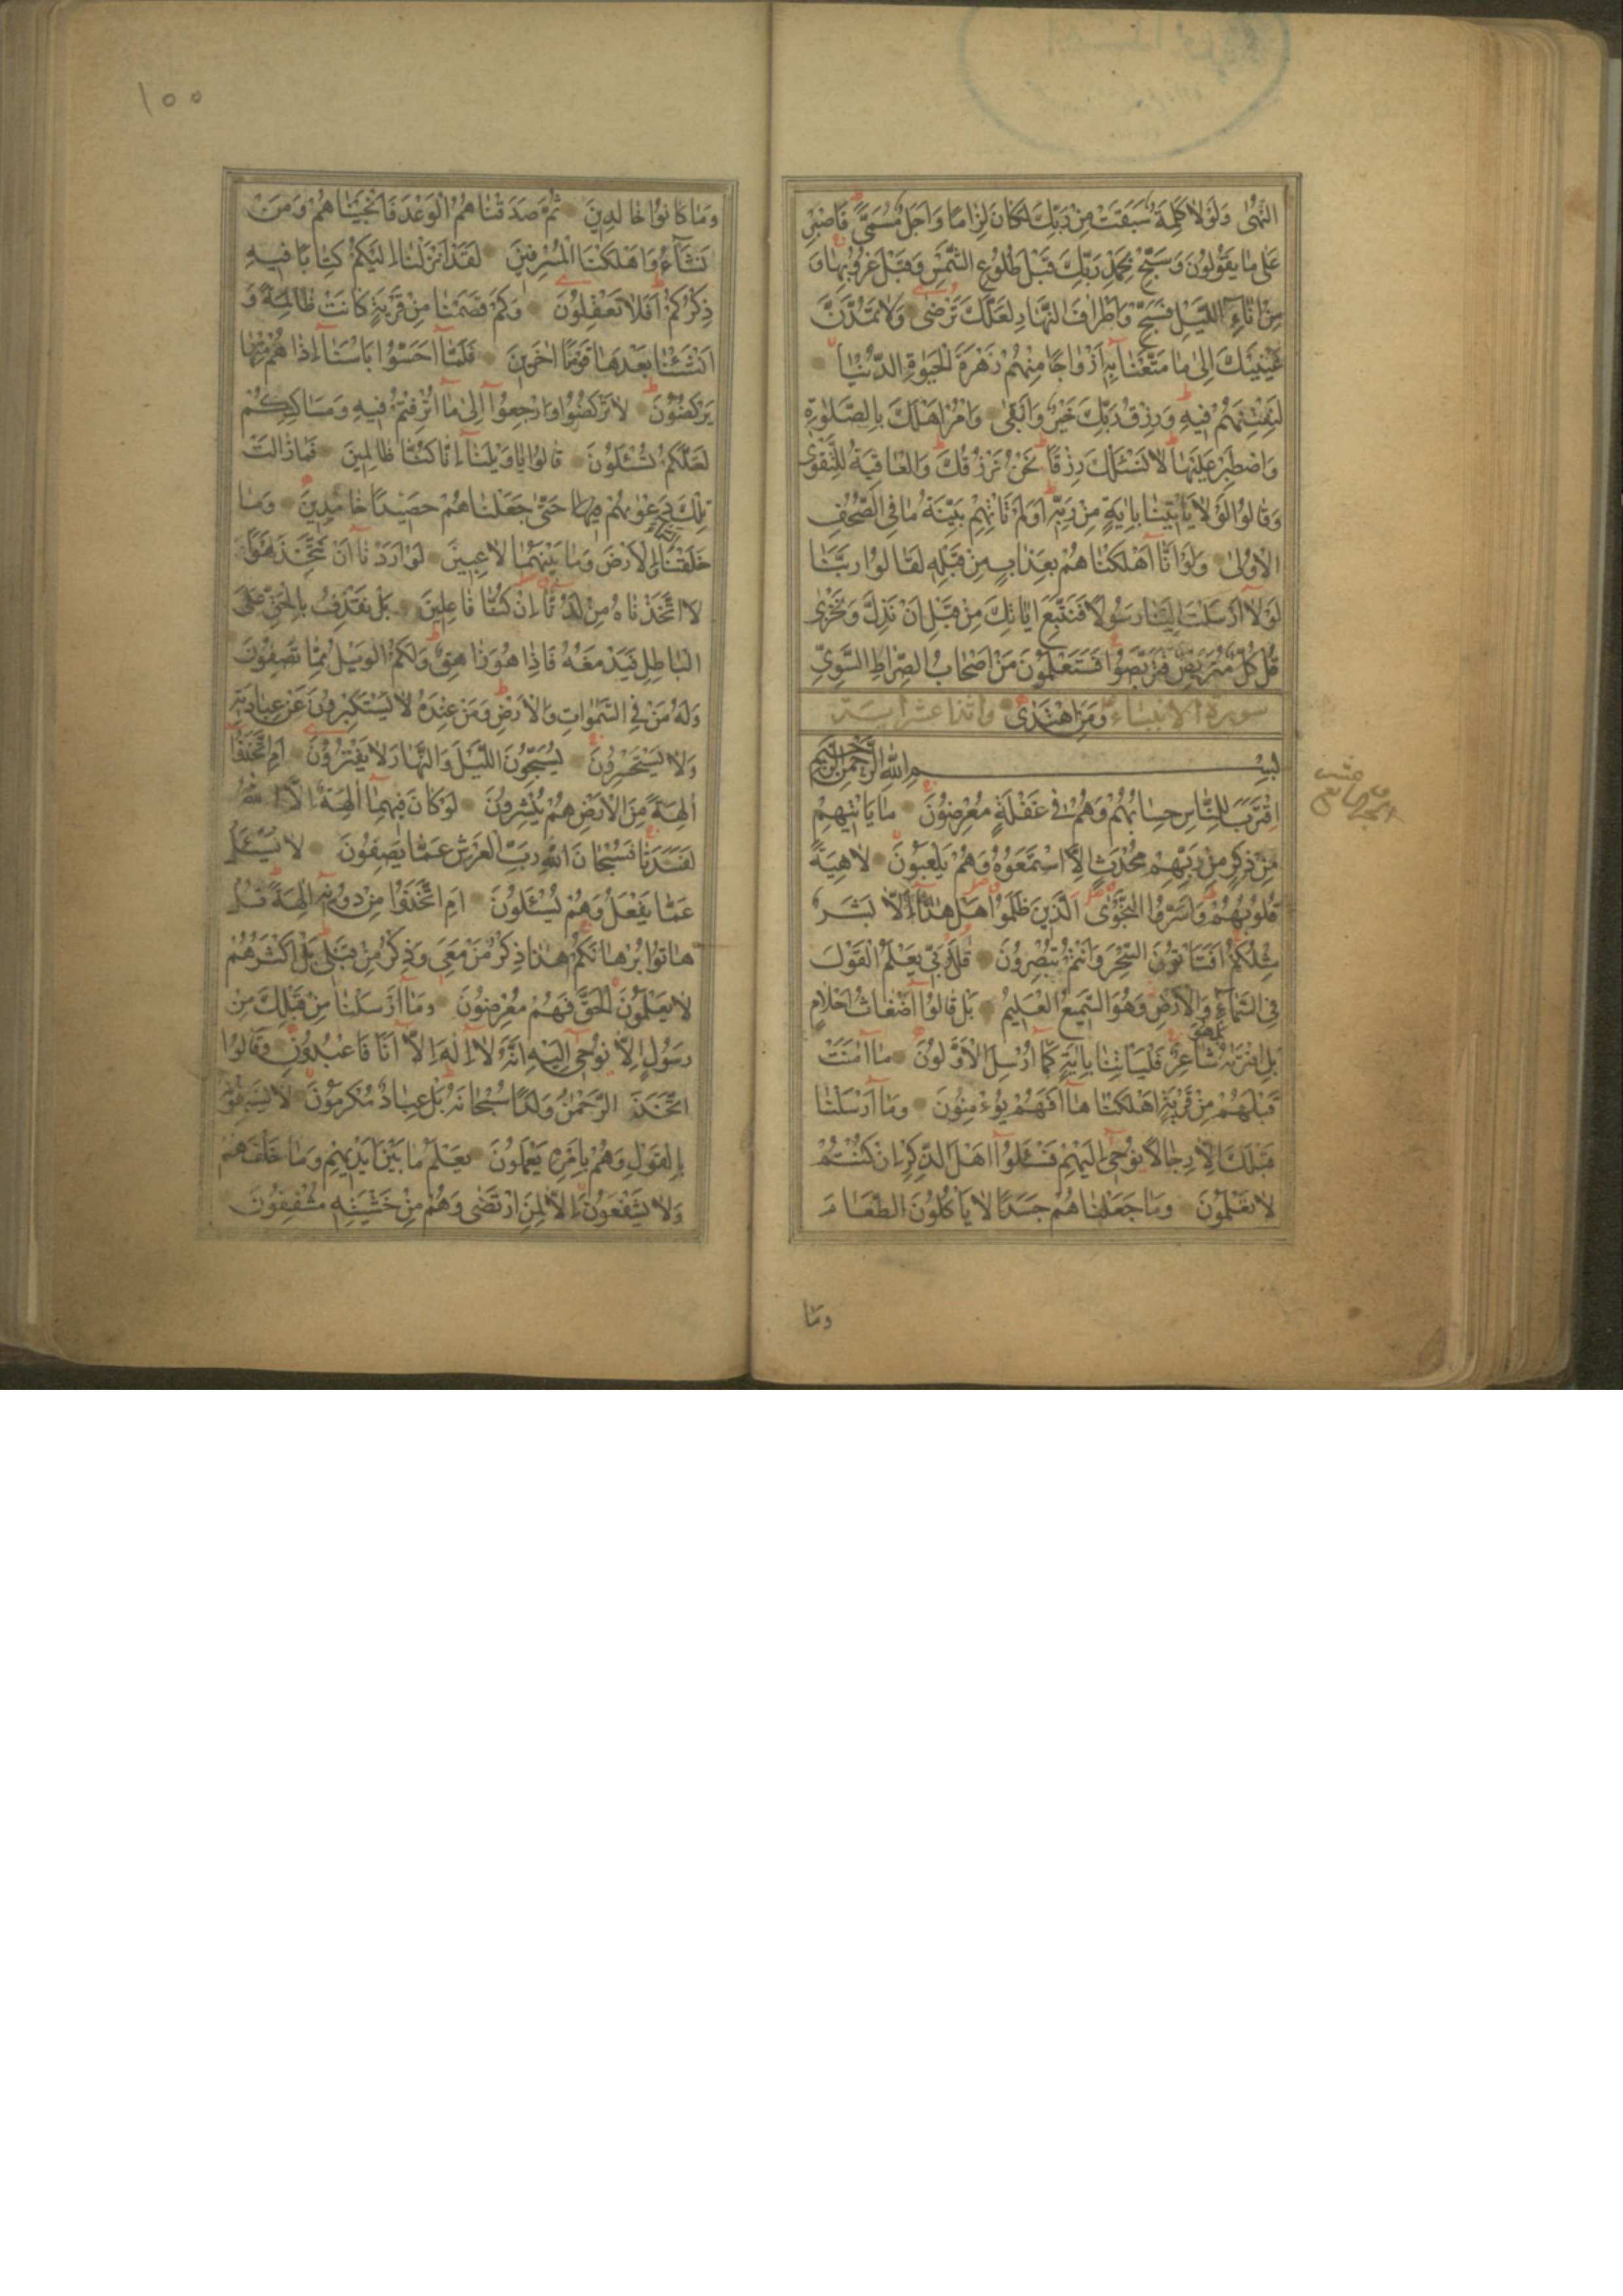 النُّهٰى وَلَوْلَا كَلِمَةٌ سَبَقَتْ مِنْ رَبِّكَ لَكَانَ لِزَامًا وَاَجَلٌ مُسَمًّى فَاصْبِرْ
عَلٰى مَا يَقُولُونَ وَسَبِّحْ بِحَمْدِ رَبِّكَ قَبْلَ طُلُوعِ الشَّمْسِ وَقَبْلَ غُرُوبِهَا وَ
مِنْ اٰنَاءِ اللَّيْلِ فَسَبِّحْ وَاَطْرَافَ النَّهَارِ لَعَلَّكَ تَرْضٰى وَلَا تَمُدَّنَّ
عَيْنَيْكَ اِلٰى مَا مَتَّعْنَا بِهِ اَزْوَاجًا مِنْهُمْ زَهْرَةَ الْحَيٰوةِ الدُّنْيَا
لِنَفْتِنَهُمْ فِيهِ وَرِزْقُ رَبِّكَ خَيْرٌ وَاَبْقٰى وَاْمُرْ اَهْلَكَ بِالصَّلٰوةِ
وَاصْطَبِرْ عَلَيْهَا لَا نَسْئَلُكَ رِزْقًا نَحْنُ نَرْزُقُكَ وَالْعَاقِبَةُ لِلتَّقْوٰى
وَقَالُوا لَوْلَا يَأْتِينَا بِاٰيَةٍ مِنْ رَبِّهِ اَوَلَمْ تَأْتِهِمْ بَيِّنَةُ مَا فِي الصُّحُفِ
الْاُولٰى وَلَوْ اَنَّا اَهْلَكْنَاهُمْ بِعَذَابٍ مِنْ قَبْلِهِ لَقَالُوا رَبَّنَا
لَوْلَا اَرْسَلْتَ اِلَيْنَا رَسُولًا فَنَتَّبِعَ اٰيَاتِكَ مِنْ قَبْلِ اَنْ نَذِلَّ وَنَخْزٰى
قُلْ كُلٌّ مُتَرَبِّصٌ فَتَرَبَّصُوا فَسَتَعْلَمُونَ مَنْ اَصْحَابُ الصِّرَاطِ السَّوِيِّ
سورة الانبياء وَمَنِ اهْتَدٰى واثنا عشر اية
بِسْمِ اللّٰهِ الرَّحْمٰنِ الرَّحِيمِ
اِقْتَرَبَ لِلنَّاسِ حِسَابُهُمْ وَهُمْ فِي غَفْلَةٍ مُعْرِضُونَ مَا يَأْتِيهِمْ
مِنْ ذِكْرٍ مِنْ رَبِّهِمْ مُحْدَثٍ اِلَّا اسْتَمَعُوهُ وَهُمْ يَلْعَبُونَ لَاهِيَةً
قُلُوبُهُمْ وَاَسَرُّوا النَّجْوٰى الَّذِينَ ظَلَمُوا هَلْ هٰذَا اِلَّا بَشَرٌ
مِثْلُكُمْ اَفَتَأْتُونَ السِّحْرَ وَاَنْتُمْ تُبْصِرُونَ قُلْ رَبِّي يَعْلَمُ الْقَوْلَ
فِي السَّمَاءِ وَالْاَرْضِ وَهُوَ السَّمِيعُ الْعَلِيمُ بَلْ قَالُوا اَضْغَاثُ اَحْلَامٍ
بَلِ افْتَرٰيهُ بَلْ هُوَ شَاعِرٌ فَلْيَأْتِنَا بِاٰيَةٍ كَمَا اُرْسِلَ الْاَوَّلُونَ مَا اٰمَنَتْ
قَبْلَهُمْ مِنْ قَرْيَةٍ اَهْلَكْنَاهَا اَفَهُمْ يُؤْمِنُونَ وَمَا اَرْسَلْنَا
قَبْلَكَ اِلَّا رِجَالًا نُوحِي اِلَيْهِمْ فَسْئَلُوا اَهْلَ الذِّكْرِ اِنْ كُنْتُمْ
لَا تَعْلَمُونَ وَمَا جَعَلْنَاهُمْ جَسَدًا لَا يَأْكُلُونَ الطَّعَامَ
وَمَا
١٥٥
وَمَا كَانُوا خَالِدِينَ ثُمَّ صَدَقْنَاهُمُ الْوَعْدَ فَاَنْجَيْنَاهُمْ وَمَنْ
نَشَاءُ وَاَهْلَكْنَا الْمُسْرِفِينَ لَقَدْ اَنْزَلْنَا اِلَيْكُمْ كِتَابًا فِيهِ
ذِكْرُكُمْ اَفَلَا تَعْقِلُونَ وَكَمْ قَصَمْنَا مِنْ قَرْيَةٍ كَانَتْ ظَالِمَةً وَ
اَنْشَأْنَا بَعْدَهَا قَوْمًا اٰخَرِينَ فَلَمَّا اَحَسُّوا بَأْسَنَا اِذَا هُمْ مِنْهَا
يَرْكُضُونَ لَا تَرْكُضُوا وَارْجِعُوا اِلٰى مَا اُتْرِفْتُمْ فِيهِ وَمَسَاكِنِكُمْ
لَعَلَّكُمْ تُسْئَلُونَ قَالُوا يَا وَيْلَنَا اِنَّا كُنَّا ظَالِمِينَ فَمَا زَالَتْ
تِلْكَ دَعْوٰيهُمْ حَتّٰى جَعَلْنَاهُمْ حَصِيدًا خَامِدِينَ وَمَا
خَلَقْنَا السَّمَاءَ وَالْاَرْضَ وَمَا بَيْنَهُمَا لَاعِبِينَ لَوْ اَرَدْنَا اَنْ نَتَّخِذَ لَهْوًا
لَا اتَّخَذْنَاهُ مِنْ لَدُنَّا اِنْ كُنَّا فَاعِلِينَ بَلْ نَقْذِفُ بِالْحَقِّ عَلَى
الْبَاطِلِ فَيَدْمَغُهُ فَاِذَا هُوَ زَاهِقٌ وَلَكُمُ الْوَيْلُ مِمَّا تَصِفُونَ
وَلَهُ مَنْ فِي السَّمٰوَاتِ وَالْاَرْضِ وَمَنْ عِنْدَهُ لَا يَسْتَكْبِرُونَ عَنْ عِبَادَتِهِ
وَلَا يَسْتَحْسِرُونَ يُسَبِّحُونَ اللَّيْلَ وَالنَّهَارَ لَا يَفْتُرُونَ اَمِ اتَّخَذُوا
اٰلِهَةً مِنَ الْاَرْضِ هُمْ يُنْشِرُونَ لَوْ كَانَ فِيهِمَا اٰلِهَةٌ اِلَّا اللّٰهُ
لَفَسَدَتَا فَسُبْحَانَ اللّٰهِ رَبِّ الْعَرْشِ عَمَّا يَصِفُونَ لَا يُسْئَلُ
عَمَّا يَفْعَلُ وَهُمْ يُسْئَلُونَ اَمِ اتَّخَذُوا مِنْ دُونِهِ اٰلِهَةً قُلْ
هَاتُوا بُرْهَانَكُمْ هٰذَا ذِكْرُ مَنْ مَعِيَ وَذِكْرُ مَنْ قَبْلِي بَلْ اَكْثَرُهُمْ
لَا يَعْلَمُونَ الْحَقَّ فَهُمْ مُعْرِضُونَ وَمَا اَرْسَلْنَا مِنْ قَبْلِكَ مِنْ
رَسُولٍ اِلَّا نُوحِي اِلَيْهِ اَنَّهُ لَا اِلٰهَ اِلَّا اَنَا فَاعْبُدُونِ وَقَالُوا
اتَّخَذَ الرَّحْمٰنُ وَلَدًا سُبْحَانَهُ بَلْ عِبَادٌ مُكْرَمُونَ لَا يَسْبِقُونَهُ
بِالْقَوْلِ وَهُمْ بِاَمْرِهِ يَعْمَلُونَ يَعْلَمُ مَا بَيْنَ اَيْدِيهِمْ وَمَا خَلْفَهُمْ
وَلَا يَشْفَعُونَ اِلَّا لِمَنِ ارْتَضٰى وَهُمْ مِنْ خَشْيَتِهِ مُشْفِقُونَ